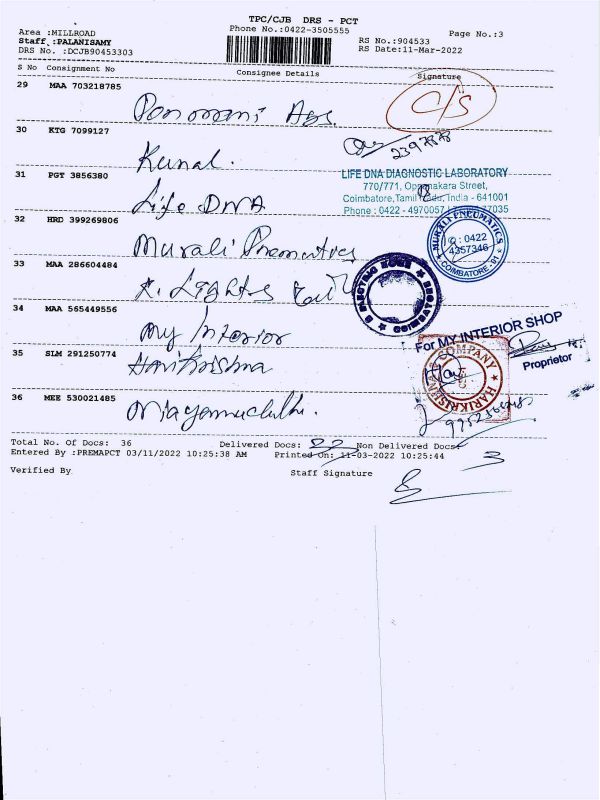 TPC/CJB DRS - PCT
Phone No.:0422-3505555
Page No.:3
Area :MILLROAD
Staff :PALANISAMY
DRS No. :DCJB90453303
RS No.:904533
RS Date:11-Mar-2022
S No Consignment No Consignee Details Signature
29 MAA 703218785
C/S
30 KTG 7099127
Kunal.
31 PGT 3856380
Life DNA
LIFE DNA DIAGNOSTIC LABORATORY
770/771, Oppanakara Street,
Coimbatore,Tamil Nadu, India - 641001
Phone : 0422 - 4970057
32 HRD 399269806
Murali
MURALI PNEUMATICS
: 0422
4357346
COIMBATORE
33 MAA 286604484
Lights
ELECTRIC
COIMBATORE
34 MAA 565449556
My Interior
For MY INTERIOR SHOP
Proprietor
35 SLM 291250774
Harikrishna
COMPANY
36 MEE 530021485
Total No. Of Docs: 36 Delivered Docs: Non Delivered Docs:
3
Entered By :PREMAPCT 03/11/2022 10:25:38 AM Printed On: 11-03-2022 10:25:44
Verified By Staff Signature